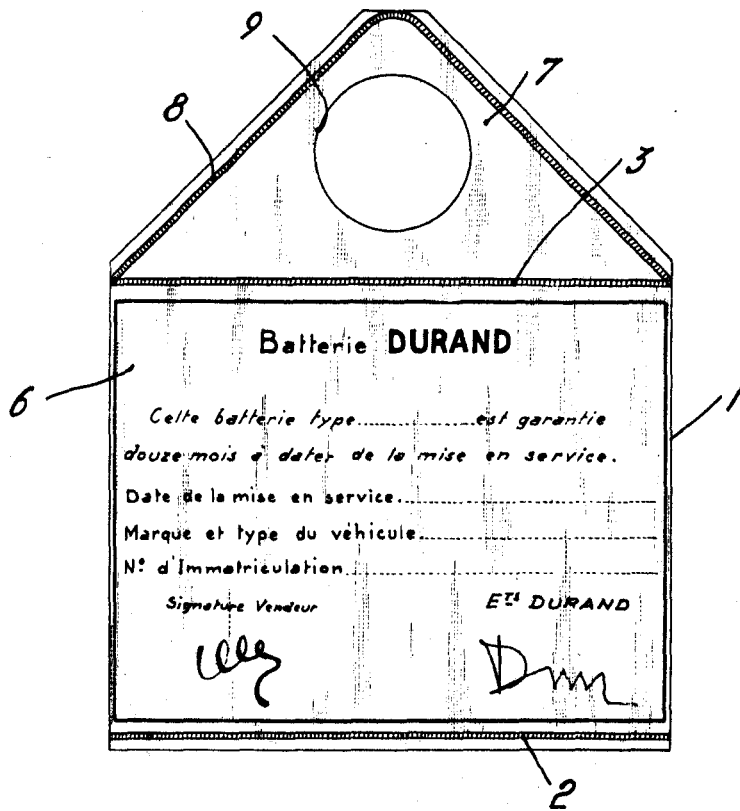 9
7
8
3
Batterie DURAND
6
1
Cette batterie type............est garantie
douze mois à dater de la mise en service.
Date de la mise en service..............................
Marque et type du véhicule..............................
N° d'Immatriculation..............................
Signature Vendeur ETS DURAND
2